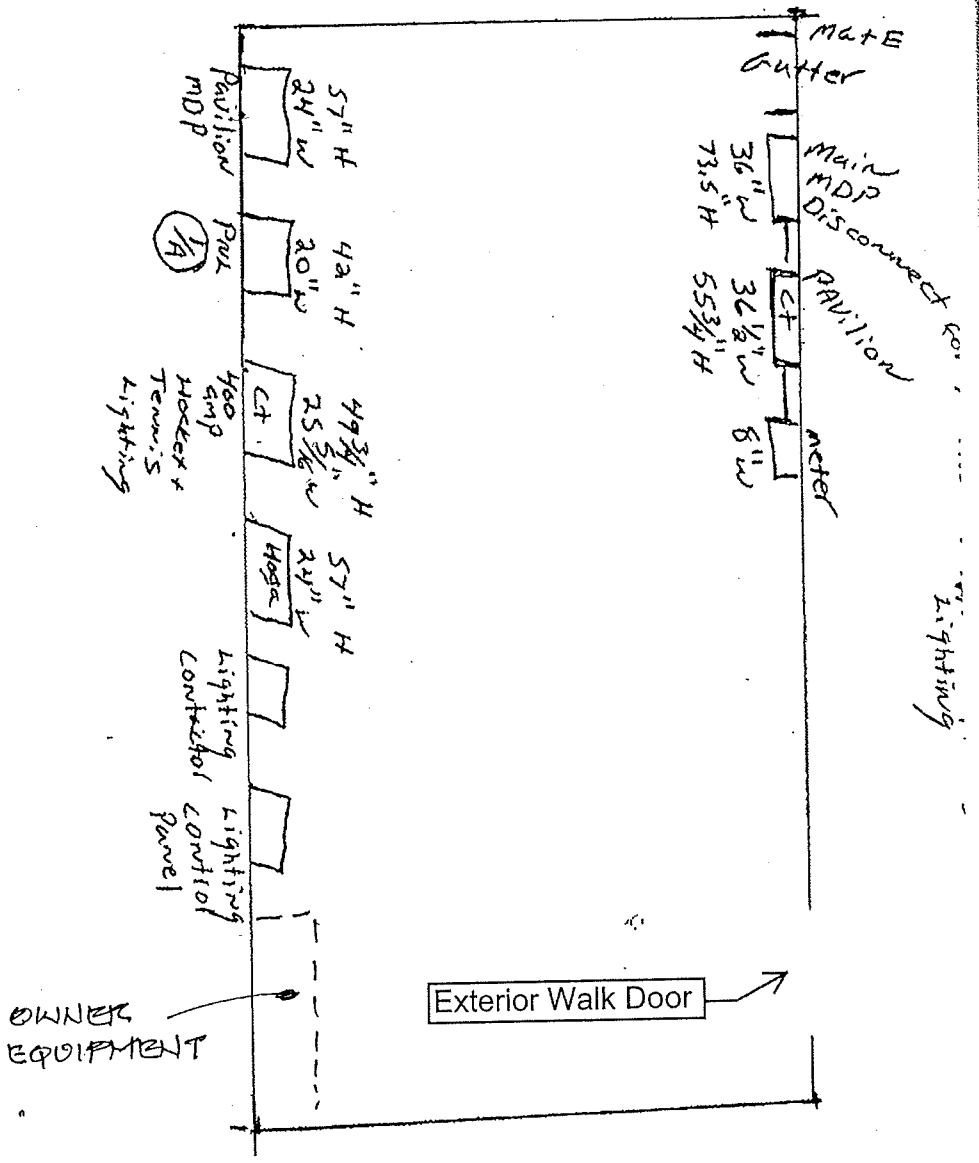 MatE
Gutter
Main
MDP
Disconnect for
Lighting
36" W
73.5" H
PAVilion
Ct
36 1/2" W
55 3/4" H
meter
8" W
Pavilion
MDP
57" H
24" W
PNL
1/A
42" H
20" W
400
amp
Hockey +
Tennis
Lighting
Ct.
49 3/4" H
57" H
24" W
Lighting
Contactor
Lighting
Control
Panel
OWNER
EQUIPMENT
Exterior Walk Door